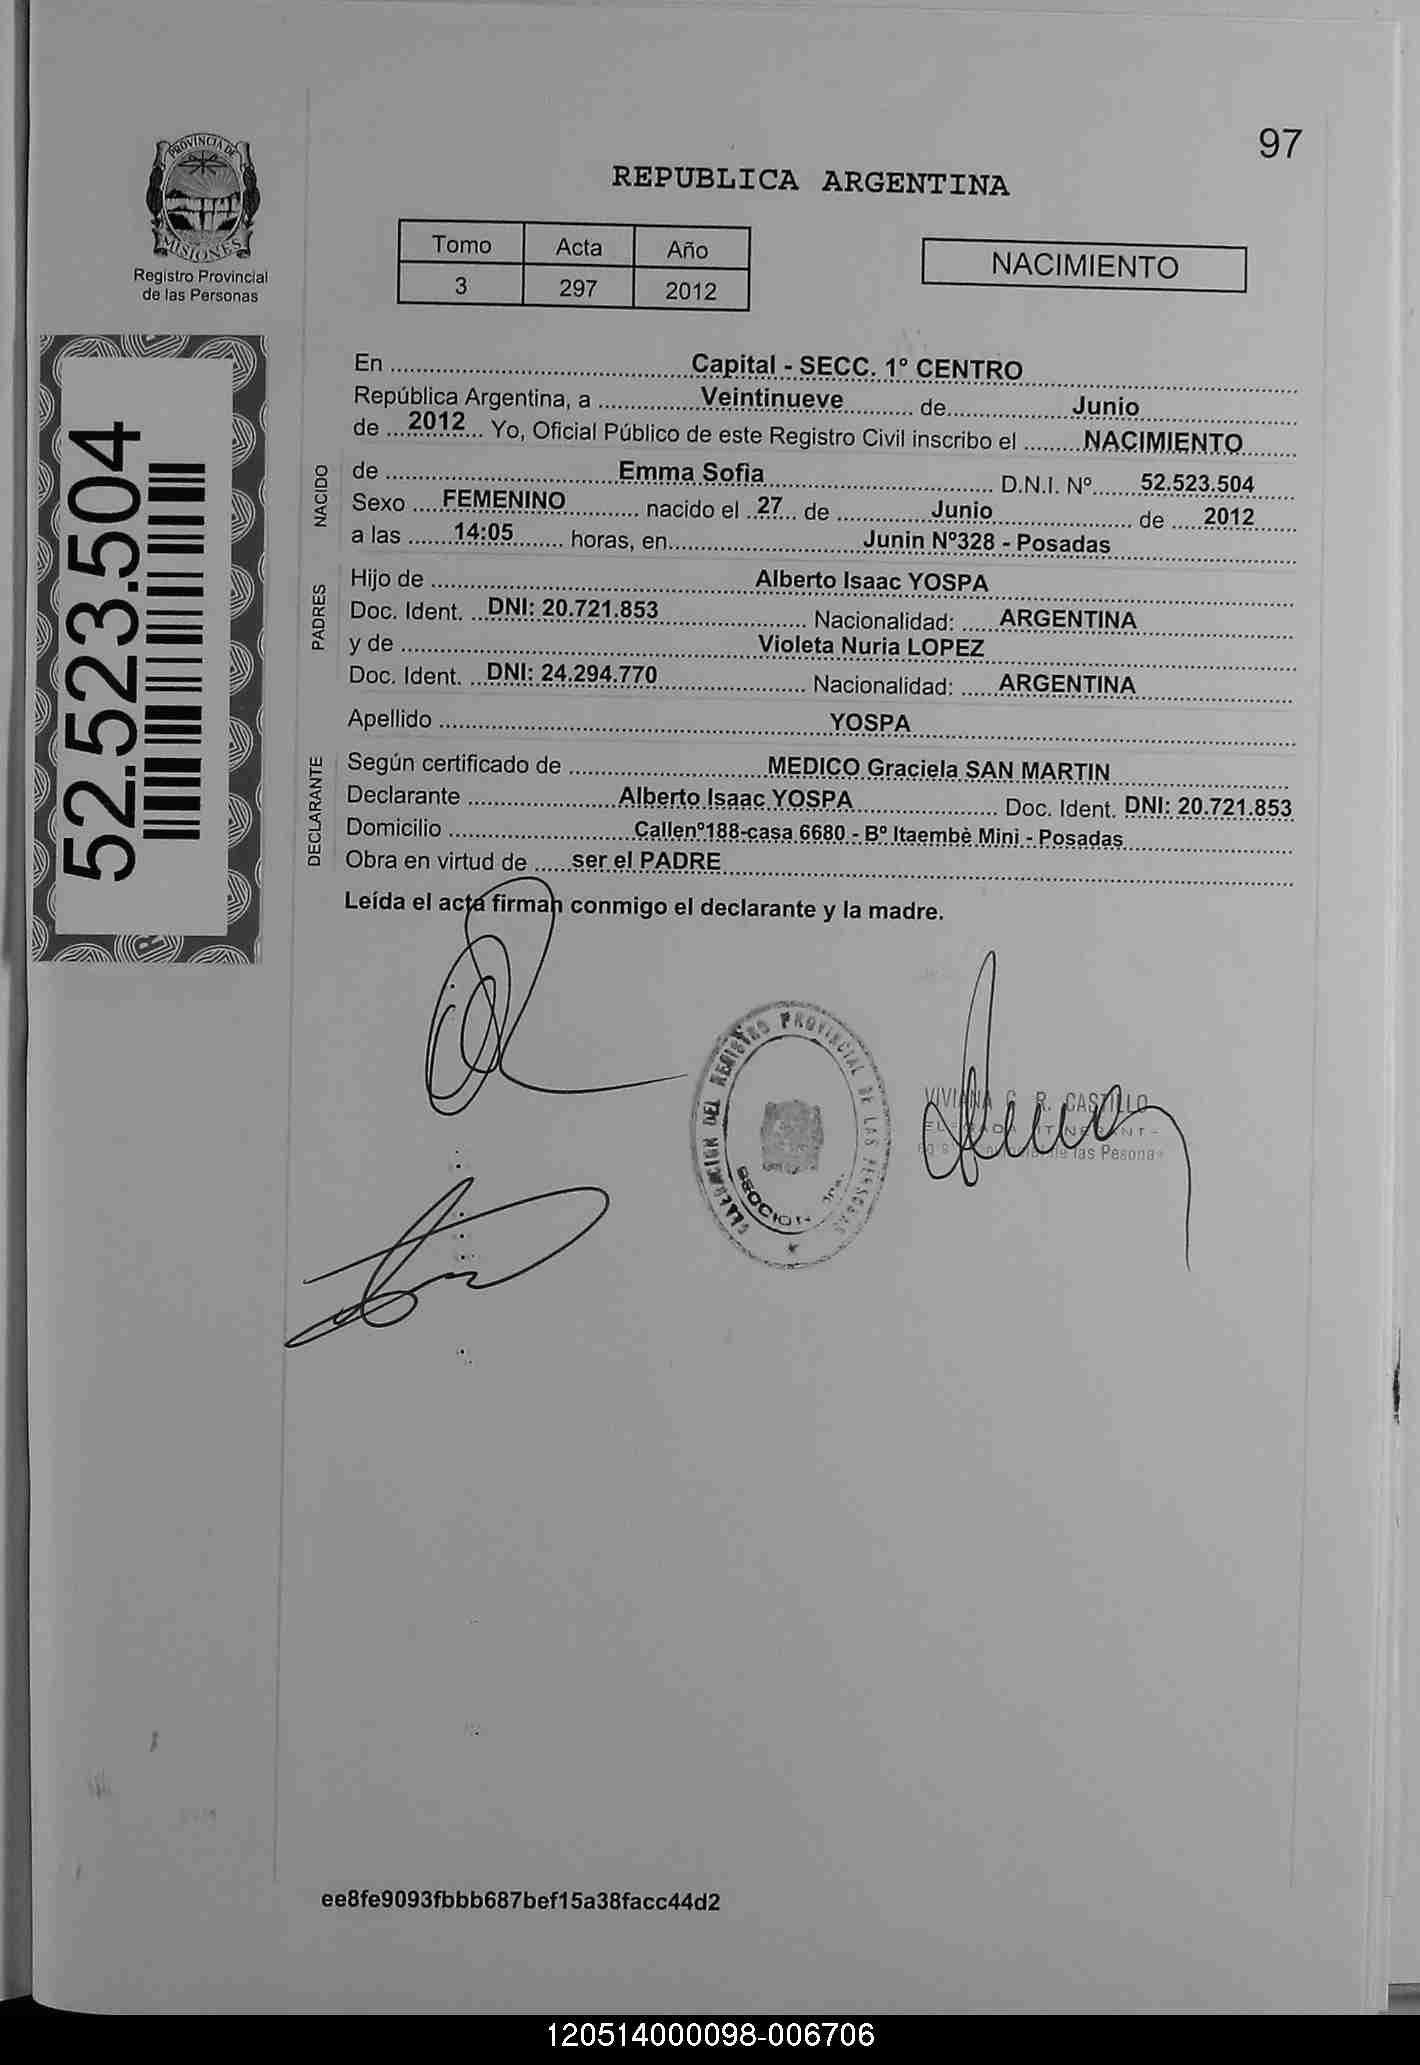 97
PROVINCIA DE
MISIONES
Registro Provincial
de las Personas
REPUBLICA ARGENTINA
Tomo Acta Año
3 297 2012
NACIMIENTO
52.523.504
En ........ Capital - SECC. 1º CENTRO
República Argentina, a ........ Veintinueve ........ de ........ Junio
de ... 2012 ... Yo, Oficial Público de este Registro Civil inscribo el ........ NACIMIENTO
NACIDO
de ........ Emma Sofia ........ D.N.I. Nº ...... 52.523.504
Sexo .... FEMENINO ........ nacido el .. 27 ... de ........ Junio ........ de .... 2012
a las ...... 14:05 ........ horas, en ........ Junin Nº328 - Posadas
PADRES
Hijo de ........ Alberto Isaac YOSPA
Doc. Ident. .. DNI: 20.721.853 ........ Nacionalidad: ..... ARGENTINA
y de ........ Violeta Nuria LOPEZ
Doc. Ident. .. DNI: 24.294.770 ........ Nacionalidad: ..... ARGENTINA
Apellido ........ YOSPA
DECLARANTE
Según certificado de ........ MEDICO Graciela SAN MARTIN
Declarante ........ Alberto Isaac YOSPA ........ Doc. Ident. DNI: 20.721.853
Domicilio ........ Callenº188-casa 6680 - Bº Itaembè Mini - Posadas
Obra en virtud de ..... ser el PADRE
Leída el acta firman conmigo el declarante y la madre.
DEL REGISTRO PROVINCIAL DE LAS PERSONAS
SECCION
VIVIANA C. R. CASTILLO
de las Pesona
ee8fe9093fbbb687bef15a38facc44d2
120514000098-006706